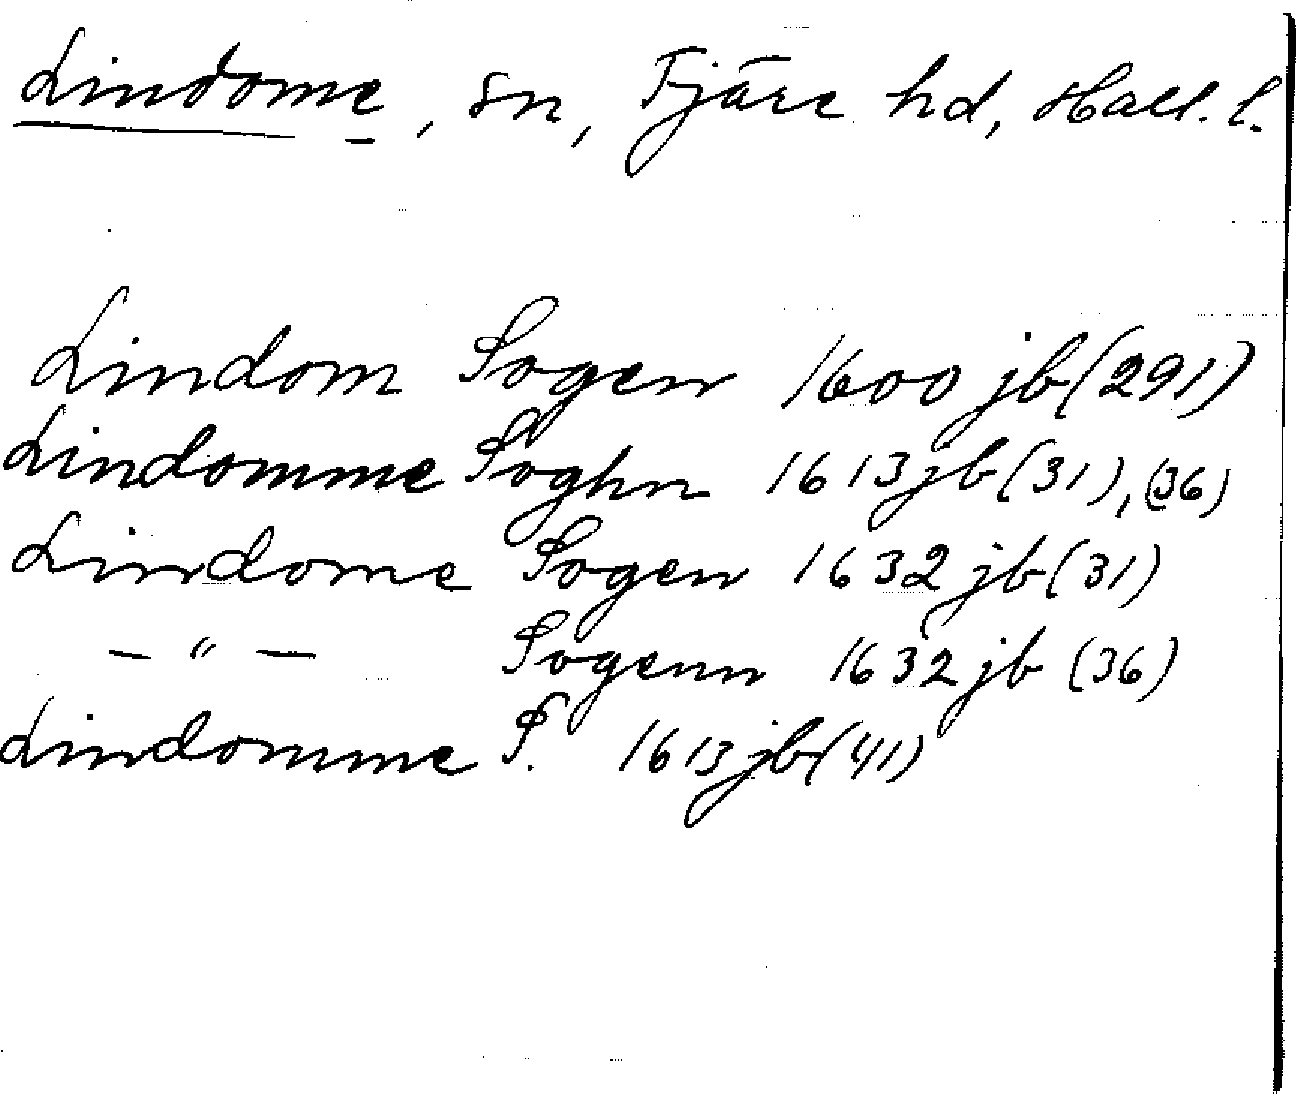 Lindome, sn, Fjäre hd, Hall. l.
Lindom Sogen 1600 jb (291)
Lindomme Soghn 1613 jb (31), (36)
Lindome Sogen 1632 jb (31)
— " — Sogenn 1632 jb (36)
Lindomme S. 1613 jb (41)